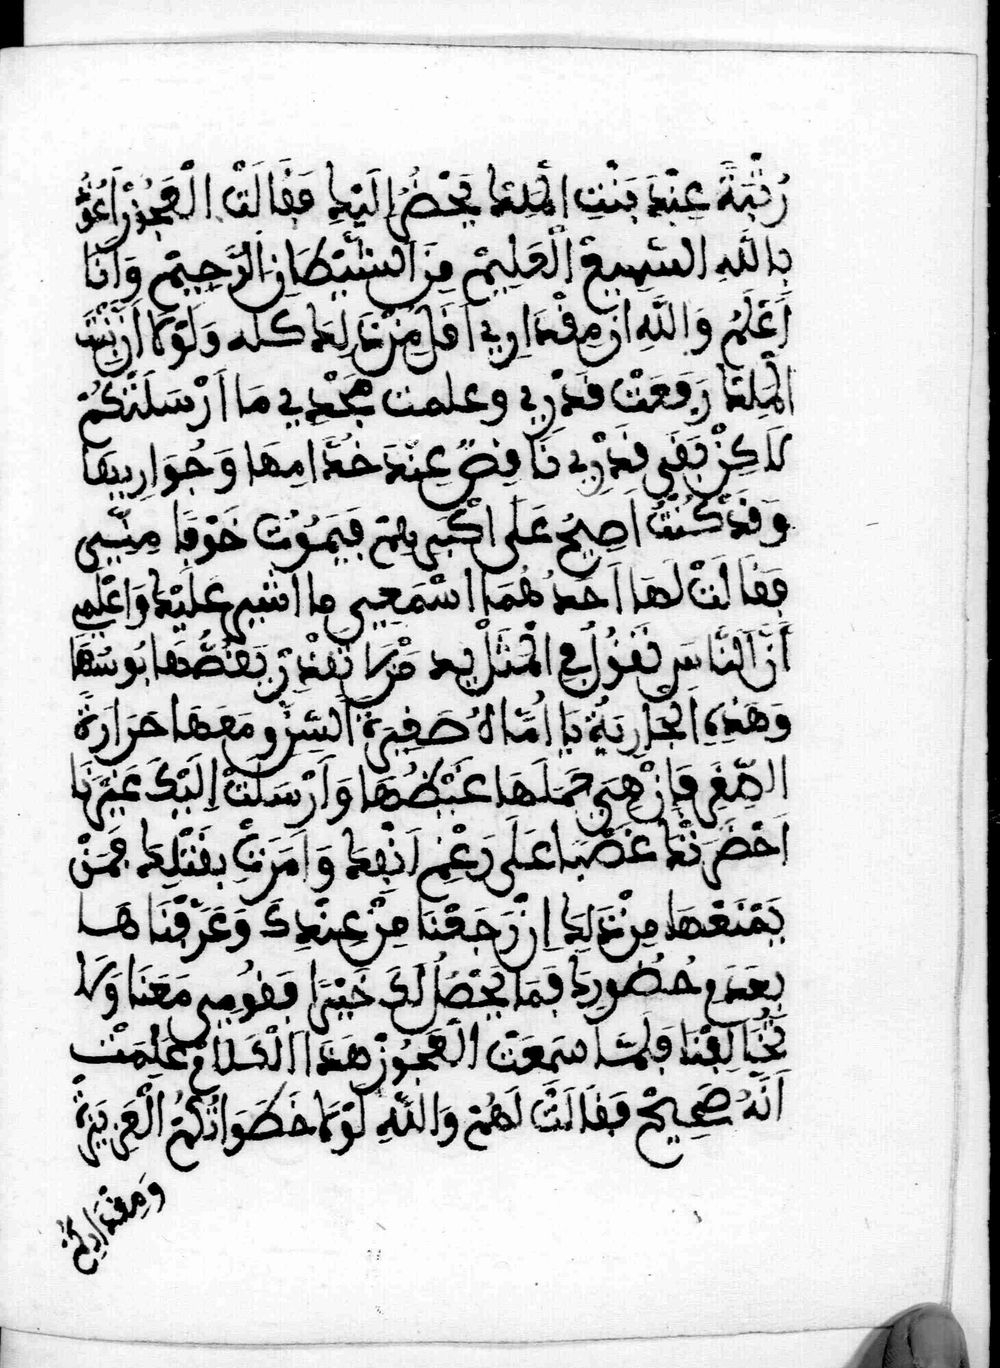 رُتْبَةً عِنْدَ بَنْتِ الْمَلِكْ يَحْضُرْ إِلَيْكِ فَقَالَتْ الْعَجُوزْ أَعُوذُ
بِاللَّهِ السَّمِيعْ الْعَلِيمْ مِنَ الشَّيْطَانِ الرَّجِيمْ وَأَنَا
أَعْلَمُ وَاللَّهِ أَنْ مِقْدَارِي أَقَلْ مِنْ ذَلِكْ كله وَلَوْلَا أَنْ بَنْتْ
الْمَلِكْ رَفَعَتْ قَدْرِي وعلمت مَجْدِي مَا أَرْسَلَتْكُمْ
لَاكِنْ بَقَى قَدْرِي نَاقِصْ عِنْدَ خُدَّامِهَا وَجُوَارِيهَا
وَقَدْ كُنْتُ اَصِيحُ عَلَى اكْبَرِهِمْ فَيَمُوتْ خَوْفًا مِنِّي
فَقَالَتْ لَهَا اَحَدُهُمَا اسْمَعِي ما اشير عَلَيْكِ وَاعْلَمِي
أَنَّ النَّاسَ تَقُولُ فِي الْمَثَلْ يد مَنْ لَا تَقْدَرْ تَعَضُّهَا بُوسْهَا
وَهَذِهِ الْجَارِيَةُ يَا أُمَّاهُ صَغِيرَةُ السِّنِّ وَمَعَهَا حَرَارَةُ
الصِّغَرِ فَإِنْ هِيَ حَمَلَهَا غَيْظُهَا وَأَرْسَلَتْ إِلَيْكِ غَيْرَنَا
اَحْضَرَتْكَ غَصْبًا عَلَى رَغْمِ اَنْفِكِ وَاَمَرَتْ بِقَتْلِكِ فَمَنْ
يَمْنَعْهَا مِنْ ذَلِكَ اِنْ رَجَعْنَا مِنْ عِنْدِكَ وَعَرَّفْنَاهَا
بِعَدَمِ حُضُورِكِ فَمَا يَحْصُلْ لَكِ خَيْرًا فَقُومِي مَعَنَا وَلَا
تُخَالِفْنَا فَلَمَّا سَمَعَتْ الْعَجُوزْ هَذَا الْكَلَامْ عَلِمَتْ
أَنَّهُ صَحِيحْ فَقَالَتْ لَهُمْ وَاللَّهِ لَوْلَا خَطَوَاتُكُمُ الْعَزِيزَةُ
وَمِقْدَارِكُمْ